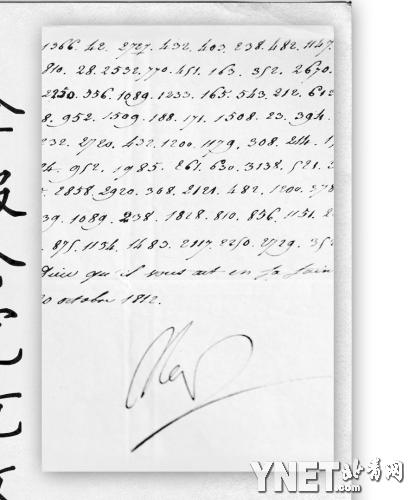 1366. 42. 2727. 432. 403. 238. 482. 1147.
810. 28. 2532. 770. 451. 163. 352. 2670.
2250. 336. 1089. 1233. 165. 543. 212. 612
8. 952. 1509. 188. 171. 1508. 23. 394.
232. 2720. 432. 1200. 1179. 308. 214.
24. 952. 1985. 261. 630. 3138. 521.
2858. 2920. 368. 2121. 482. 1200. 378
39. 1089. 238. 1828. 810. 836. 1151.
. 875. 1134. 1483. 2117. 2250. 2729. 35
Dieu qu'il vous ait en Sa Sain
20 octobre 1812.
YNET.com 北青网